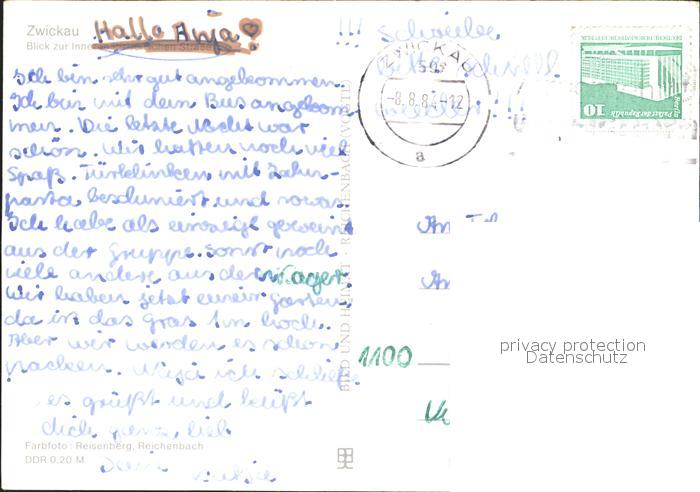 Zwickau
Hallo Anja
Blick zur Inneren
Ich bin sehr gut angekommen.
Ich bin mit dem Bus angekom
men. Die letzte Nacht war
schön. Wir hatten noch viel
Spaß. Türklinken mit Zahn-
pasta beschmiert und sowas.
Ich habe als einzige geweint
aus der Gruppe. Sonst noch
viele andere aus der Lager.
Wir haben jetzt einen Garten,
da ist das Gras 1m hoch.
Aber wir werden es schon
packen. Naja ich schließe
es grüßt und küßt
dich ganz lieb
Farbfoto: Reisenberg, Reichenbach
DDR 0,20 M
BILD UND HEIMAT · REICHENBACH
!!! Schreibe
Bitte schnell
!!!
ZWICKAU
-8.8.84-12
a
DEUTSCHE DEMOKRATISCHE REPUBLIK
Berlin Palast der Republik
10
An
1100
privacy protection
Datenschutz